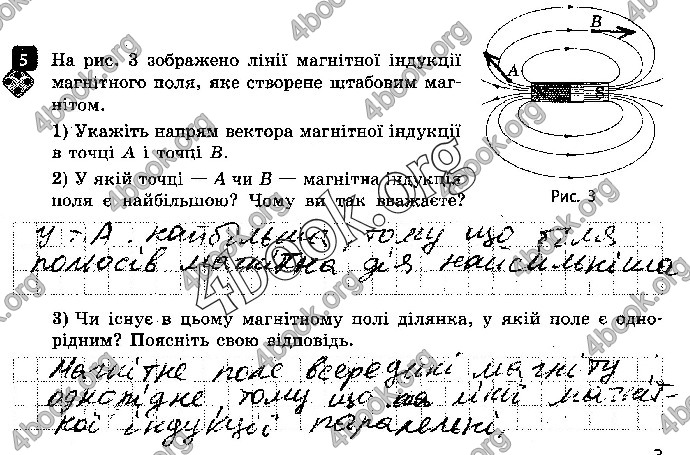 5 На рис. 3 зображено лінії магнітної індукції
магнітного поля, яке створене штабовим маг-
нітом.
1) Укажіть напрям вектора магнітної індукції
в точці А і точці В.
2) У якій точці — А чи В — магнітна індукція
поля є найбільшою? Чому ви так вважаєте?
A
B
S
Рис. 3
У т. А. найбільша, тому що біля
полюсів магнітна дія найсильніша
3) Чи існує в цьому магнітному полі ділянка, у якій поле є одно-
рідним? Поясніть свою відповідь.
Магнітне поле всередині магніту
однорідне, тому що лінії магніт-
ної індукції паралельні.
3
4book.org